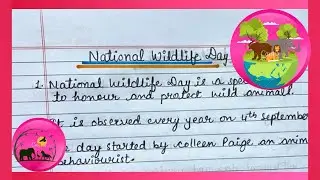 National Wildlife Day
1. National Wildlife Day is a
to honour and protect wild animals.
It is observed every year on 4th September
day started by Colleen Paige an
behaviourist.